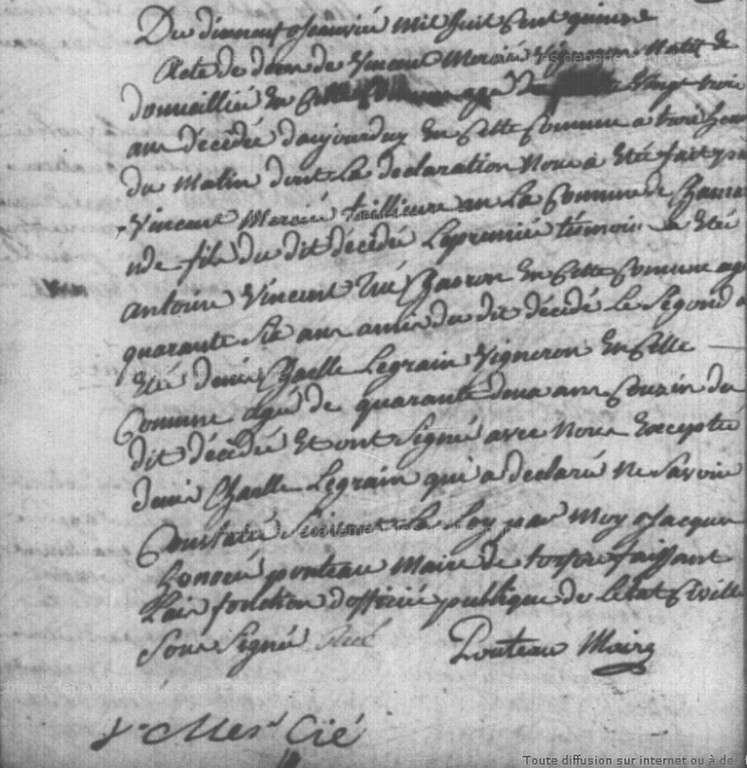 Du dianneuf Jeanvié mil huit Cent quinze
Acte de deces de vincent Mercié vigneron Natif de
domicillié En Cette Commune agé de vingt trois
ans décédé daujourduy En Cette Commune a trois heure
du Matin dont La declaration Nous a Eté fait par
vincent Mercié taillieure en La Commune de
nde fils du dit décédé Le premié témoin a Eté
antoine vincent Charon En Cette Commune agé
quarante Six ans amis du dit décédé Le Segond a
Eté denis Chaelle Legrain vigneron En Cette
Comune agé de quarante deux ans Couzin du
dit décédé Et ont Signé avec Nous Excepté
denis Chaelle Legrain qui a declaré Ne Savoir
Constaté Suivant La Loy par Moy Jacque
honoré ponteau Maire de torfou faissant
Lais fonction dofficié publique de Létat Civille
Sous Signé
Ponteau Maire
v Cié
Toute diffusion sur internet ou à de